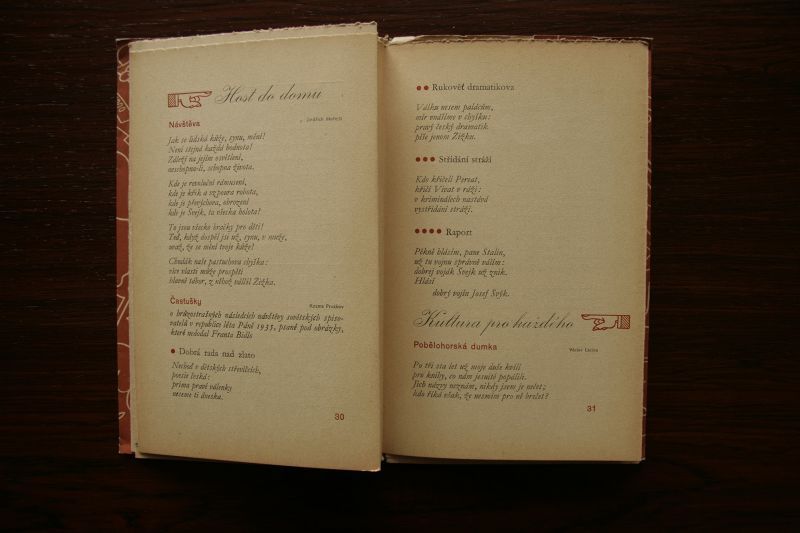 Host do domu
Návštěva
Jak se lidská kůže, synu, mění!
Není stejná každá hodnota!
Záleží na jejím osvětlení,
neschopna-li, schopna života.
Kde je revoluční rámusení,
kde je křik a vzpoura robota,
kde je převýchova, obrození
kde je Švejk, ta všecka holota!
To jsou všecko hračky pro děti!
Teď, když dospěl jsi už, synu, v muže,
svaž, že se mění tvoje kůže!
Chudák naše pastuchova chyška:
více vlasti může prospěti
slavné tábor, z něhož válčil Žižka.
Častušky
Kozma Prutkov
o hrůzostrašných následcích návštěvy sovětských spiso-
vatelů v republice léta Páně 1935, psané pod obrázky,
které nebudoval Franta Bidlo
Dobrá rada nad zlato
Nechoď v dětských střevících,
poesie česká:
prima pravé válenky
neseme ti dneska.
30
Rukověť dramatikova
Válku nesem palácům,
mír vnášíme v chyšku:
pravý český dramatik
píše jenom Žižku.
Střídání stráží
Kdo křičeli Pereat,
křičí Vivat v ráži:
v kriminálech nastává
vystřídání stráží.
Raport
Pěkně hlásím, pane Stalin,
už tu vojnu správně válím:
dobrej voják Švejk už znik.
Hlásí
dobrý vojín Josef Švýk.
Kultura pro každého
Pobělohorská dumka
Václav Lacina
Po tři sta let už moje duše kvílí
pro knihy, co nám jesuité popálili.
Jich názvy neznám, nikdy jsem je nečet;
kdo říká však, že nesmím pro ně brečet?
31